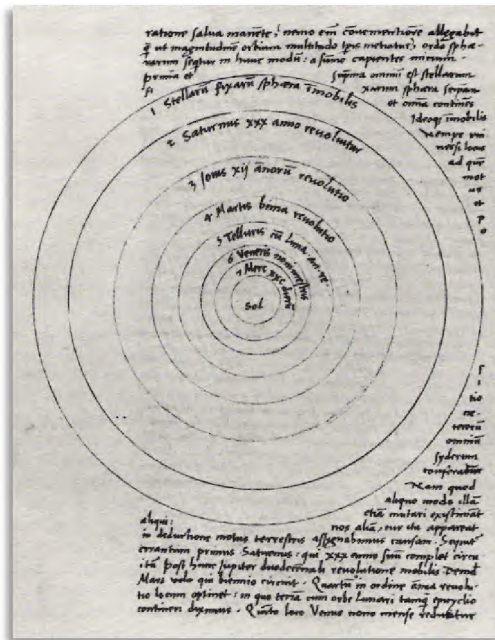 ratione salua manente, nemo em̄ conuenientiorē allegabit
q̄ ut magnitudinē orbium multitudo tp̄is metiatur, ordo sphæ-
rarum sequitur in hunc modū: a sūmo capientes initium.
prima et suprema omniū est stellarum
fi xarum sphæra seipsam
et omnia continēs
Ideoq̄ īmobilis
nempe uni
uersi locus
ad quē
mot
us
et
p
o
1 Stellarū fixarū sphæra īmobilis
2 Saturnus xxx anno reuoluitur
3 Iouis xij annorū reuolutio
4 Martis bima reuolutio
5 Telluris cū Luna an. re.
6 Veneris nonimestris
7 Merc xxc dierū
Sol
r
i
tio
ne-
terorū
omniū
syderum
conferatur
Nam quod
aliquo modo illā
etiā mutari existimāt
aliqui: nos aliā, cur ita appareat
in deductione motus terrestris assignabimus causam. Sequit̄
errantium primus Saturnus: qui xxx anno suū complet circu
itū post hunc Iupiter duodecenali reuolutione mobilis Demū
Mars uolo qui biennio circuit. Quartū in ordine annua reuolu-
tio locum optinet: in quo terrā cum orbe Lunari tamq̄ epicyclo
contineri diximus. Quinto loco Venus nono mense reducitur